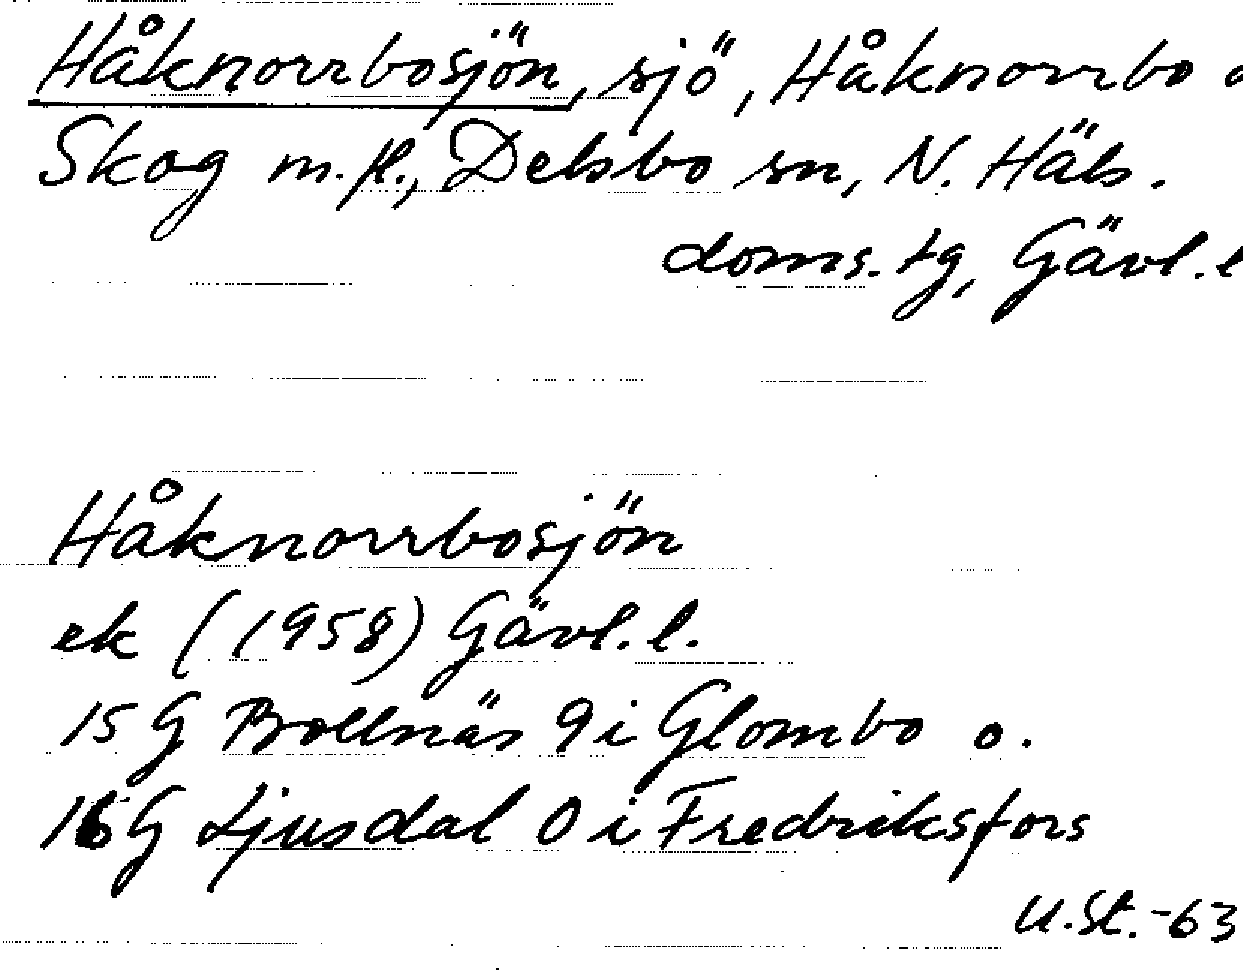 Håknorrbosjön, sjö, Håknorrbo o
Skog m.fl., Delsbo sn, N. Häls.
doms. tg, Gävl. l
Håknorrbosjön
ek (1958) Gävl. l.
15 G Bollnäs 9 i Glombo o.
16 G Ljusdal 0 i Fredriksfors
U.St.-63